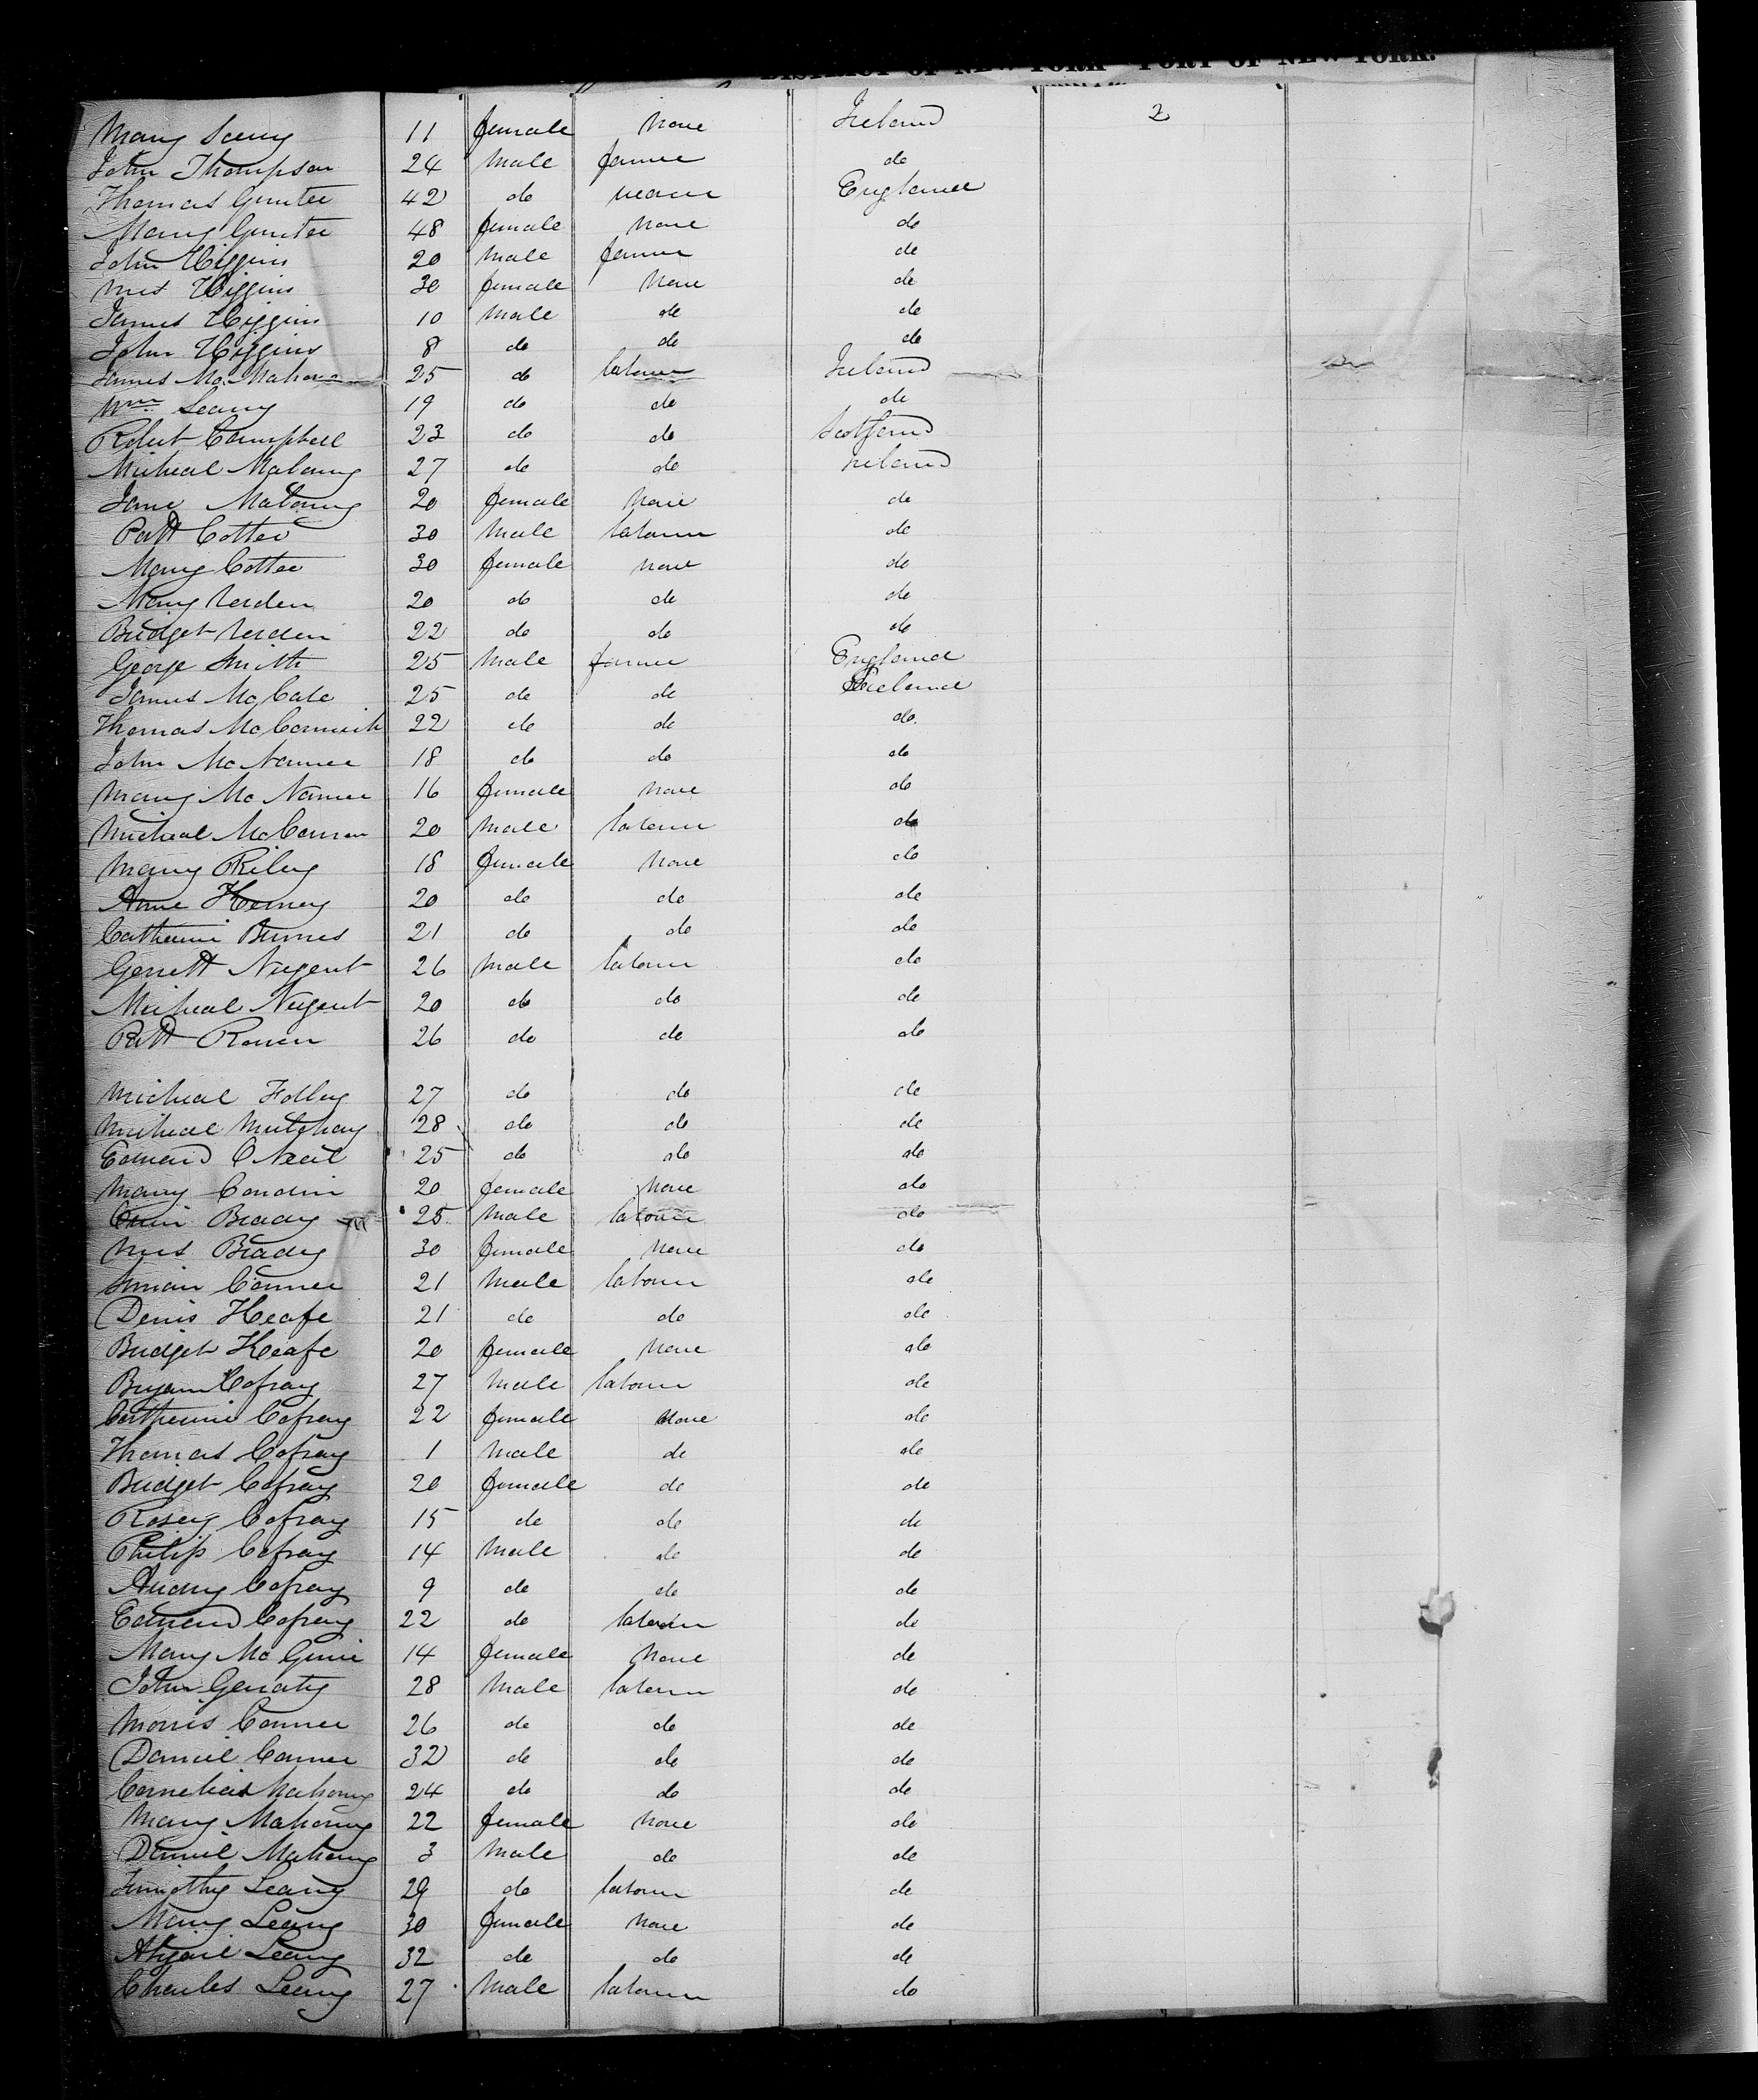 DISTRICT OF NEW YORK - PORT OF NEW YORK.
Mary Leary 11 female None Ireland 2
John Thompson 24 Male farmer do
Thomas Gunter 42 do England
Mary Gunter 48 female None do
John Higgins 20 Male farmer do
Mrs Higgins 30 female None do
James Higgins 10 Male do do
John Higgins 8 do do do
James McMahon 25 do labourer Ireland
Wm Leary 19 do do do
Robert Campbell 23 do do Scotland
Micheal Maloney 27 do do Ireland
Jane Maloney 20 female None do
Patt Cotter 30 Male labourer do
Mary Cotter 30 female None do
Mary 20 do do do
Bridget 22 do do do
George Smith 25 Male farmer England
James McCale 25 do do Ireland
Thomas McCormick 22 do do do
John McNamee 18 do do do
Mary McNamee 16 female None do
Micheal 20 Male labourer do
Mary Riley 18 female None do
Anne 20 do do do
Catherine Burnes 21 do do do
Gerrett Nugent 26 Male labourer do
Micheal Nugent 20 do do do
Patt Ronen 26 do do do
Micheal Folley 27 do do do
Micheal 28 do do do
Edmund O Neal 25 do do do
Mary Condrin 20 female None do
Brady 25 Male labourer do
Mrs Brady 30 female None do
Conner 21 Male labourer do
Denis Keafe 21 do do do
Bridget Keafe 20 female None do
Bryan Cofray 27 Male labourer do
Catherine Cofray 22 female None do
Thomas Cofray 1 Male do do
Bridget Cofray 20 female do do
Rosey Cofray 15 do do do
Philip Cofray 14 Male do do
Andrey Cofray 9 do do do
Edmund Cofray 22 do labourer do
Mary 14 female None do
John Geraty 28 Male labourer do
Morris Conner 26 do do do
Daniel Conner 32 do do do
Cornelius Mahony 24 do do do
Mary Mahony 22 female None do
Daniel Mahony 3 Male do do
Timothy Leary 29 do labourer do
Mary Leary 30 female None do
Abigail Leary 32 do do do
Charles Leary 27 Male labourer do